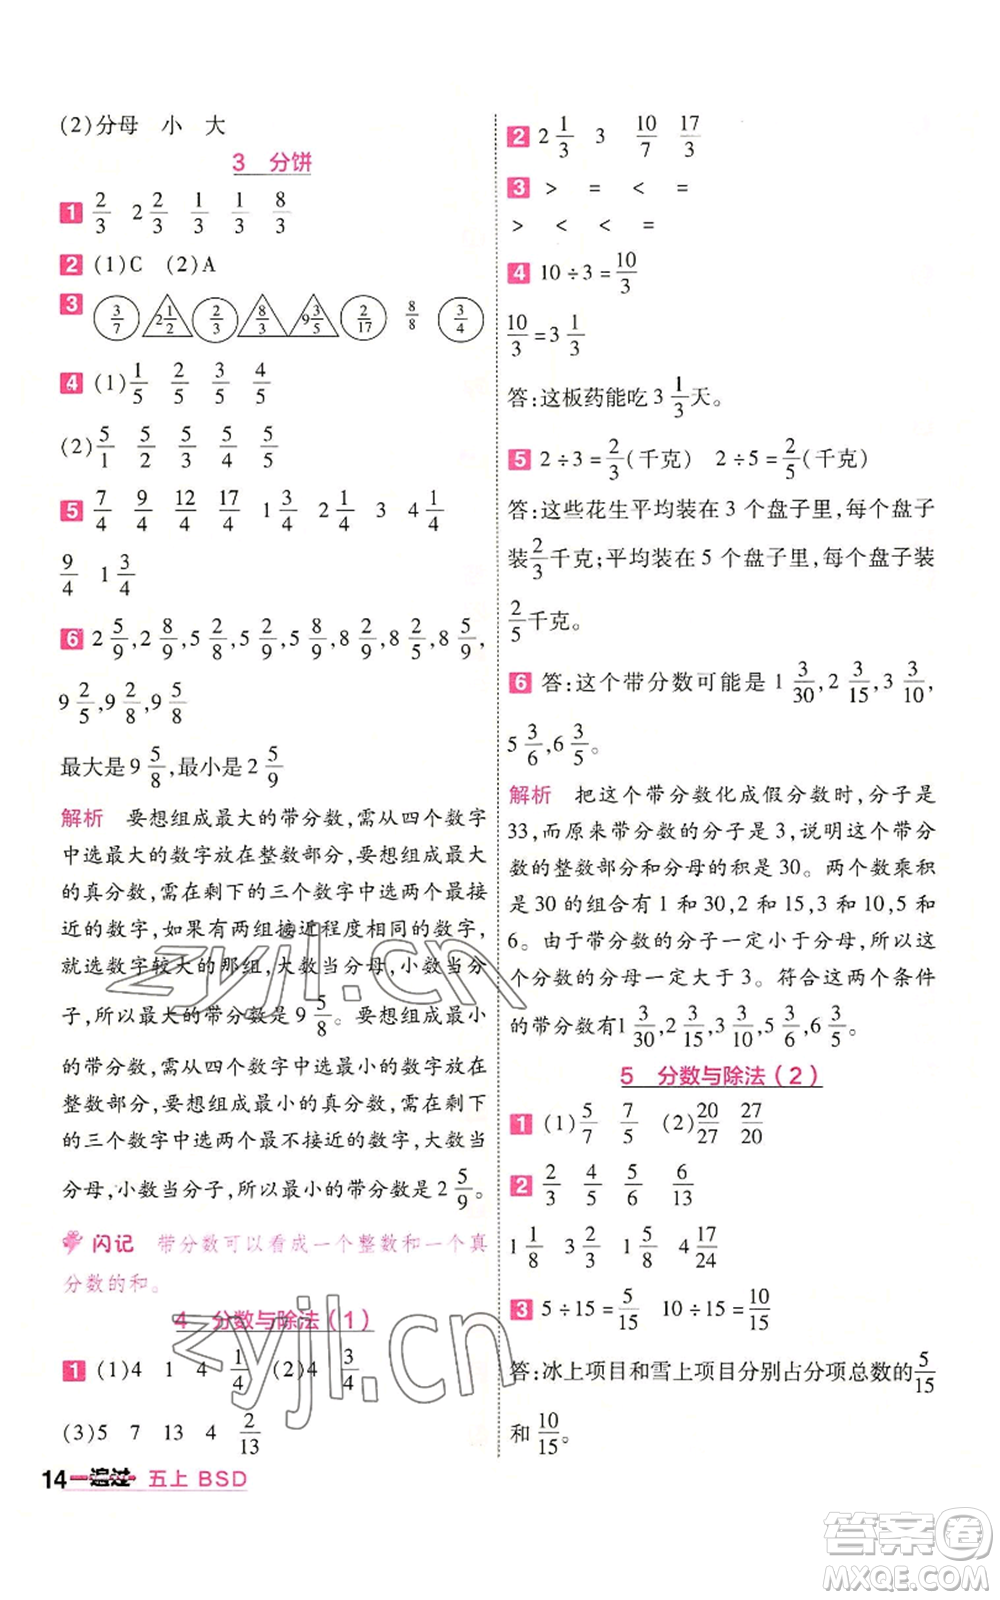 (2)分母 小 大
3 分饼
1 2/3 2 2/3 1/3 1/3 8/3
2 (1)C (2)A
3 3/7 2 1/2 2/3 8/3 9 3/5 2/17 8/8 3/4
4 (1) 1/5 2/5 3/5 4/5
(2) 5/1 5/2 5/3 5/4 5/5
5 7/4 9/4 12/4 17/4 1 3/4 2 1/4 3 4 1/4
9/4 1 3/4
6 2 5/9,2 8/9,5 2/8,5 2/9,5 8/9,8 2/9,8 2/5,8 5/9,
9 2/5,9 2/8,9 5/8
最大是9 5/8,最小是2 5/9
解析 要想组成最大的带分数,需从四个数字
中选最大的数字放在整数部分,要想组成最大
的真分数,需在剩下的三个数字中选两个最接
近的数字,如果有两组接近程度相同的数字,
就选数字较大的那组,大数当分母,小数当分
子,所以最大的带分数是9 5/8。要想组成最小
的带分数,需从四个数字中选最小的数字放在
整数部分,要想组成最小的真分数,需在剩下
的三个数字中选两个最不接近的数字,大数当
分母,小数当分子,所以最小的带分数是2 5/9。
闪记 带分数可以看成一个整数和一个真
分数的和。
4 分数与除法(1)
1 (1)4 1 4 1/4 (2)4 3/4
(3)5 7 13 4 2/13
14 一遍过 五上 BSD
2 2 1/3 3 10/7 17/3
3 > = < =
> < < <
4 10÷3=10/3
10/3=3 1/3
答:这板药能吃3 1/3天。
5 2÷3=2/3(千克) 2÷5=2/5(千克)
答:这些花生平均装在3个盘子里,每个盘子
装2/3千克;平均装在5个盘子里,每个盘子装
2/5千克。
6 答:这个带分数可能是1 3/30,2 3/15,3 3/10,
5 3/6,6 3/5。
解析 把这个带分数化成假分数时,分子是
33,而原来带分数的分子是3,说明这个带分
数的整数部分和分母的积是30。两个数乘积
是30的组合有1和30,2和15,3和10,5和
6。由于带分数的分子一定小于分母,所以
这个分数的分母一定大于3。符合这两个条件
的带分数有1 3/30,2 3/15,3 3/10,5 3/6,6 3/5。
5 分数与除法(2)
1 (1) 5/7 7/5 (2) 20/27 27/20
2 2/3 4/5 5/6 6/13
1 1/8 3 2/3 1 5/8 4 17/24
3 5÷15=5/15 10÷15=10/15
答:冰上项目和雪上项目分别占分项总数的5/15
和10/15。
zyjl.cn
zyjl.cn
答案圈
MXQE.COM